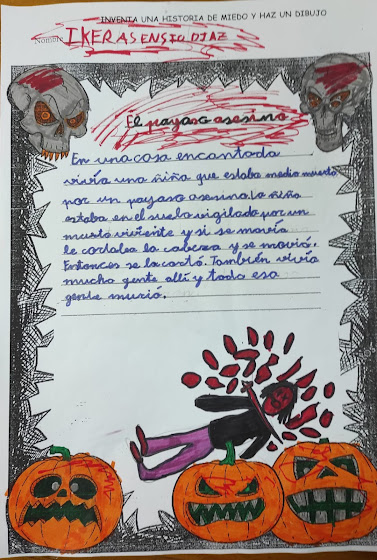 INVENTA UNA HISTORIA DE MIEDO Y HAZ UN DIBUJO
Nombre IKER ASENSIO DIAZ
El payaso asesino
En una casa encantada
vivía una niña que estaba medio muerta
por un payaso asesino. La niña
estaba en el suelo vigilada por un
muerto viviente y si se movía
le cortaba la cabeza y se movió.
Entonces se la cortó. También vivía
mucha gente allí y toda esa
gente murió.